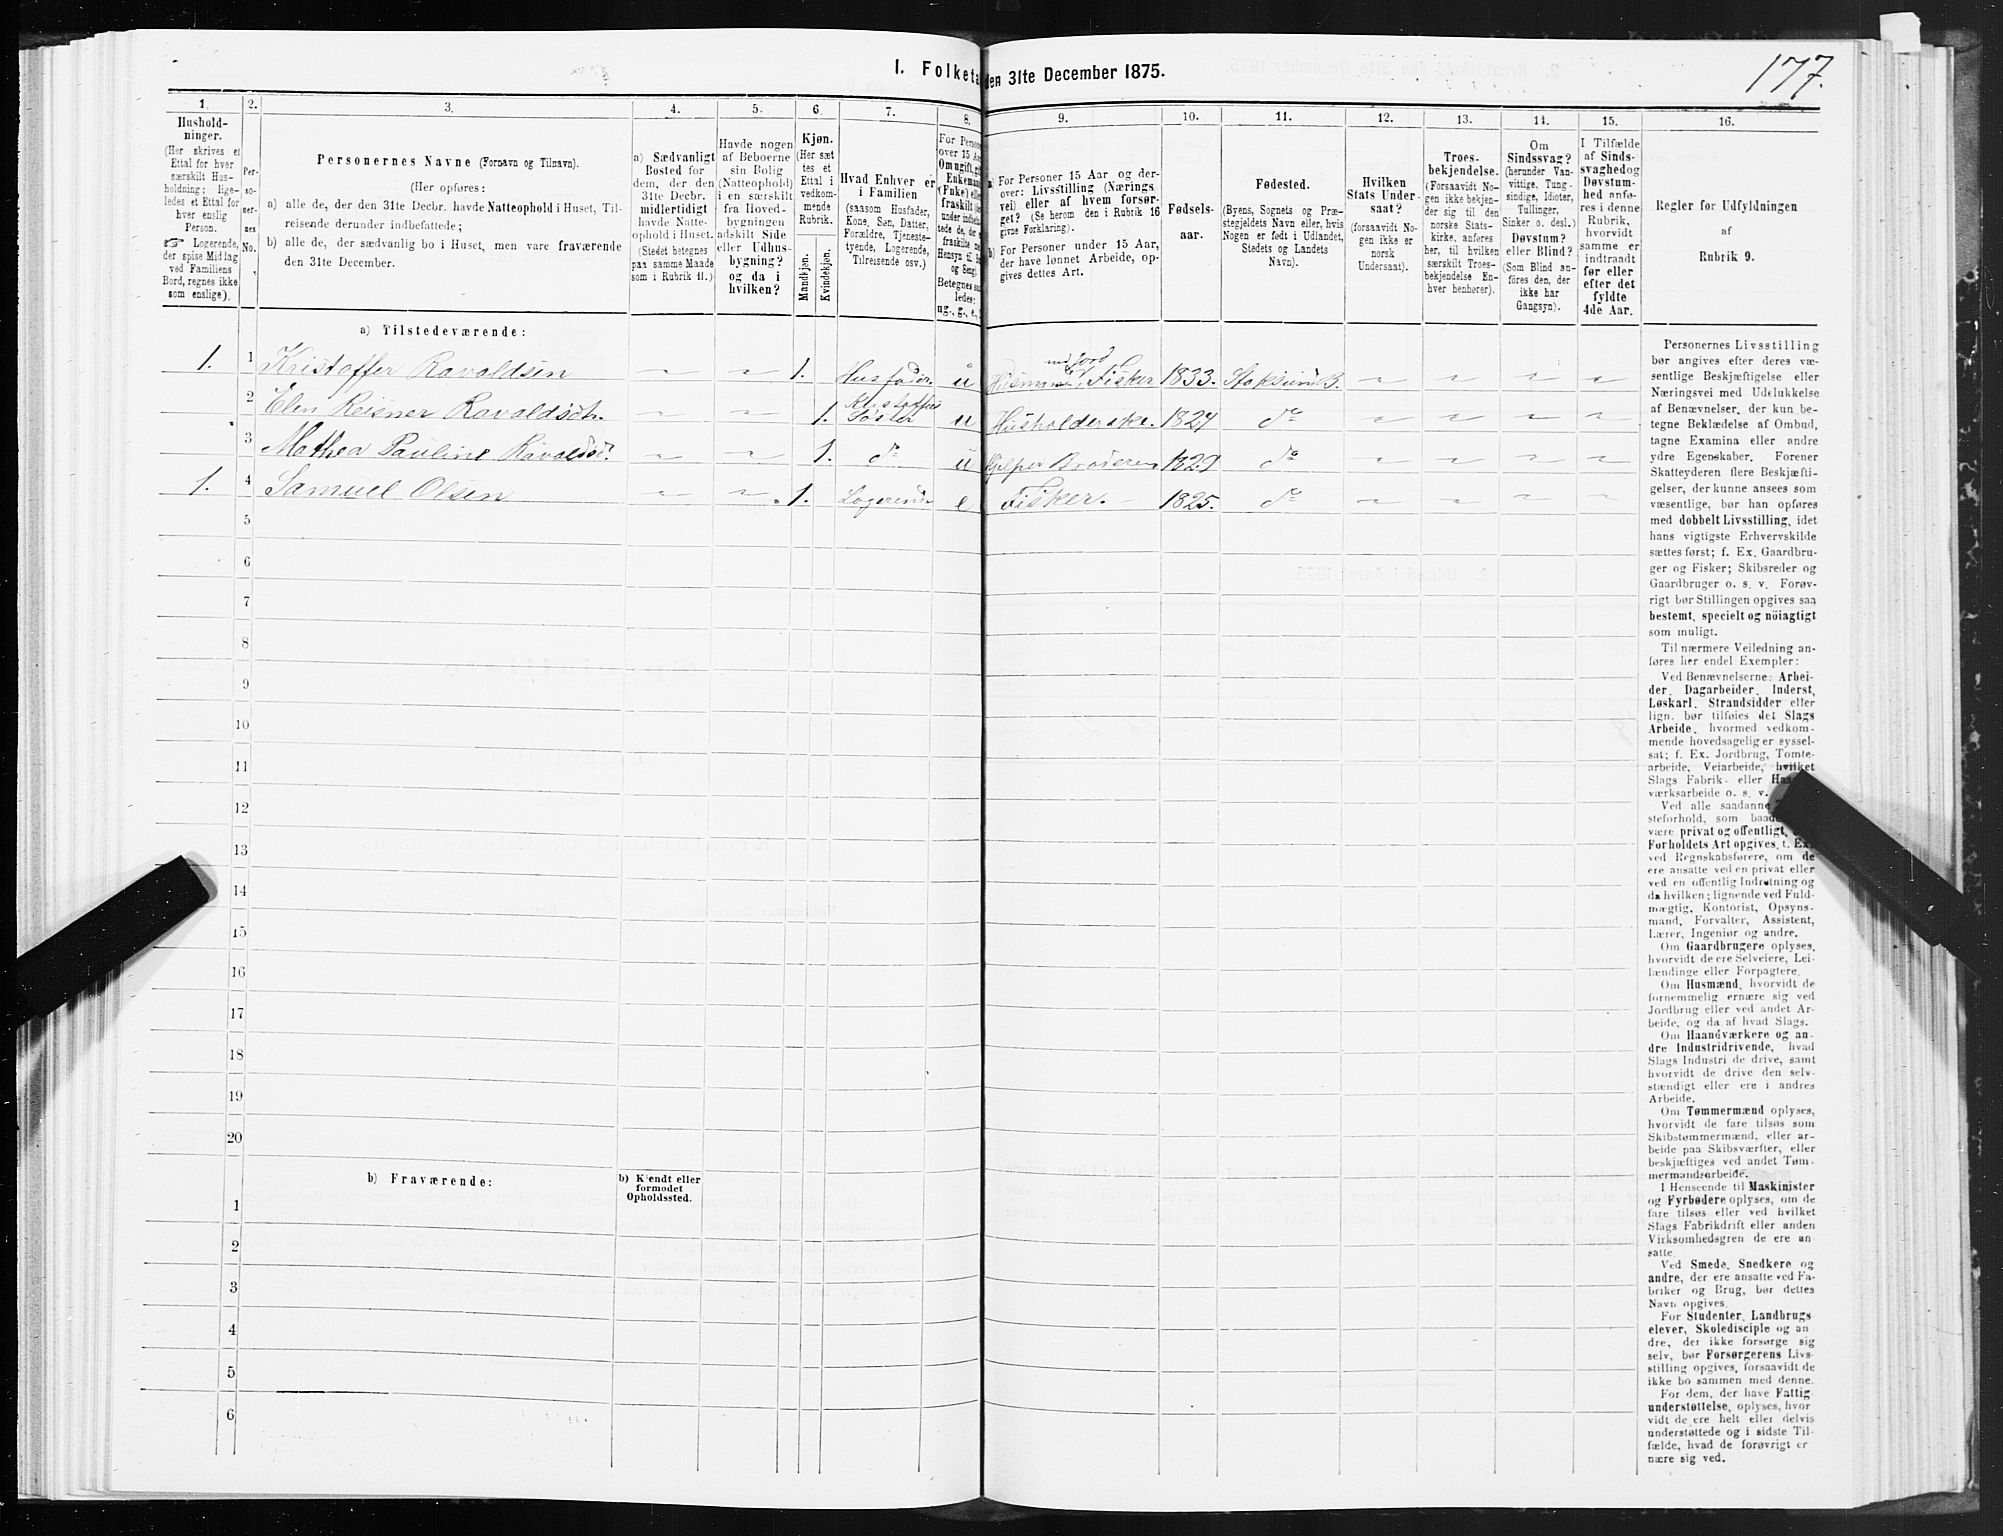 177.
I. Folketa
den 31te December 1875.
1.
2.
3.
4.
5.
6.
7.
8.
9.
10.
11.
12.
13.
14.
15.
16.
Hushold-
ninger.
(Her skrives et
Ettal for hver
særskilt Hus-
holdning; lige-
ledes et Ettal for
hver enslig
Person.
☞ Logerende,
der spise Middag
ved Familiens
Bord, regnes ikke
som enslige).
Per-
so-
ner-
nes
No.
Personernes Navne (Fornavn og Tilnavn).
(Her opføres:
a) alle de, der den 31te Decbr. havde Natteophold i Huset, Til-
reisende derunder indbefattede;
b) alle de, der sædvanlig bo i Huset, men vare fraværende
den 31te December.
a) Sædvanligt
Bosted for
dem, der den
31te Decbr.
midlertidigt
havde Natte-
ophold i Huset.
(Stedet betegnes
paa samme Maade
som i Rubrik 11.)
Havde nogen
af Beboerne
sin Bolig
(Natteophold)
i en særskilt
fra Hoved-
bygningen
adskilt Side
eller Udhus-
bygning?
og da i
hvilken?
Kjøn.
(Her sæt
tes et
Ettal i
vedkom-
mende
Rubrik.
Mandkjøn.
Kvindekjøn.
Hvad Enhver er
i Familien
(saasom Husfader,
Kone, Søn, Datter,
Forældre, Tjeneste-
tyende, Logerende,
Tilreisende osv.)
For Person
over 15 Aa
Om ugift, gif
Enkemand
(Enke) elle
fraskilt
under indbe
tede de, der
fraskilte
Hensyn til B
og Seng).
Betegnes saa
ledes:
ug., g., e.,
a) For Personer 15 Aar og der-
over: Livsstilling (Nærings
vei) eller af hvem forsør-
get? (Se herom den i Rubrik 16
givne Forklaring).
b) For Personer under 15 Aar,
der have lønnet Arbeide, op-
gives dettes Art.
Fødsels-
aar.
Fødested.
(Byens, Sognets og Præ-
stegjeldets Navn eller, hvis
Nogen er født i Udlandet,
Stedets og Landets
Navn).
Hvilken
Stats Under-
saat?
(forsaavidt No-
gen ikke er
norsk
Undersaat).
Troes-
bekjendelse.
(Forsaavidt No-
gen ikke bekjen-
der sig til den
norske Stats-
kirke, anfø-
res, til hvilken
særskilt Troes-
bekjendelse En-
hver henhører).
Om
Sindssvag?
(herunder Van-
vittige, Tung-
sindige, Idioter,
Tullinger,
Sinker o. desl.)
Døvstum?
eller Blind?
(Som Blind an-
føres den, der
ikke har
Gangsyn).
I Tilfælde
af Sinds-
svaghed og
Døvstum-
hed anfø-
res i denne
Rubrik,
hvorvidt
samme er
indtraadt
før eller
efter det
fyldte
4de Aar.
Regler for Udfyldningen
af
Rubrik 9.
a) Tilstedeværende:
1. 1 Kristoffer Ravaldsen 1. Husfader u Fisker 1833. Stoksund B.
2 Elen Reisner Ravaldsdtr. 1. Kristoffers Søster u Husholderske. 1827 do
3 Mathea Pauline Ravaldsd. 1. do u Hjelper Broderen 1829 do
1. 4 Samuel Olsen 1. Logerende e Fisker. 1825. do
5
6
7
8
9
10
11
12
13
14
15
16
17
18
19
20
b) Fraværende:
b) Kjendt eller
formodet
Opholdssted.
1
2
3
4
5
6
Personernes Livsstilling
bør angives efter deres væ-
sentlige Beskjæftigelse eller
Næringsvei med Udelukkelse
af Benævnelser, der kun be-
tegne Beklædelse af Ombud,
tagne Examina eller andre
ydre Egenskaber. Forener
Skatteyderen flere Beskjæfti-
gelser, der kunne ansees som
væsentlige, bør han opføres
med dobbelt Livsstilling, idet
hans vigtigste Erhvervskilde
sættes først; f. Ex. Gaardbru-
ger og Fisker; Skibsreder og
Gaardbruger o. s. v. Forøv-
rigt bør Stillingen opgives saa
bestemt, specielt og nöiagtigt
som muligt.
Til nærmere Veiledning an-
føres her endel Exempler:
Ved Benævnelserne: Arbei-
der, Dagarbeider, Inderst,
Løskarl, Strandsidder eller
lign. bør tilføies det Slags
Arbeide, hvormed vedkom-
mende hovedsagelig er syssel-
sat; f. Ex. Jordbrug, Tomte-
arbeide, Veiarbeide, hvilket
Slags Fabrik- eller Haand-
værksarbeide o. s. v.
Ved alle saadanne
steforhold, som baade
være privat og offentligt,
Forholdets Art opgives, f. Ex.
ved Regnskabsførere, om de
ere ansatte ved en privat eller
ved en offentlig Indretning og
da hvilken; lignende ved Fuld-
mægtig, Kontorist, Opsyns-
mand, Forvalter, Assistent,
Lærer, Ingeniør og andre.
Om Gaardbrugere oplyses,
hvorvidt de ere Selveiere, Lei-
lændinge eller Forpagtere.
Om Husmænd, hvorvidt de
fornemmelig ernære sig ved
Jordbrug eller ved andet Ar-
beide, og da af hvad Slags.
Om Haandværkere og an-
dre Industridrivende, hvad
Slags Industri de drive, samt
hvorvidt de drive den selv-
stændigt eller ere i andres
Arbeide.
Om Tømmermænd oplyses,
hvorvidt de fare tilsøs som
Skibstømmermænd, eller ar-
beide paa Skibsværfter, eller
beskjæftiges ved andet Tøm-
mermandsarbeide.
I Henseende til Maskinister
og Fyrbødere oplyses, om de
fare tilsøs eller ved hvilket
Slags Fabrikdrift eller anden
Virksomhedsgren de ere an-
satte.
Ved Smede, Snedkere og
andre, der ere ansatte ved Fa-
briker og Brug, bør dettes
Navn opgives.
For Studenter, Landbrugs
elever, Skoledisciple og an
dre, der ikke forsørge sig
selv, bør Forsørgerens Livs-
stilling opgives, forsaavidt de
ikke bo sammen med denne.
For dem, der have Fattig
understøttelse, oplyses, hvor
vidt de ere helt eller delvis
understøttede og i sidste Til-
fælde, hvad de forøvrigt er
nære sig ved.